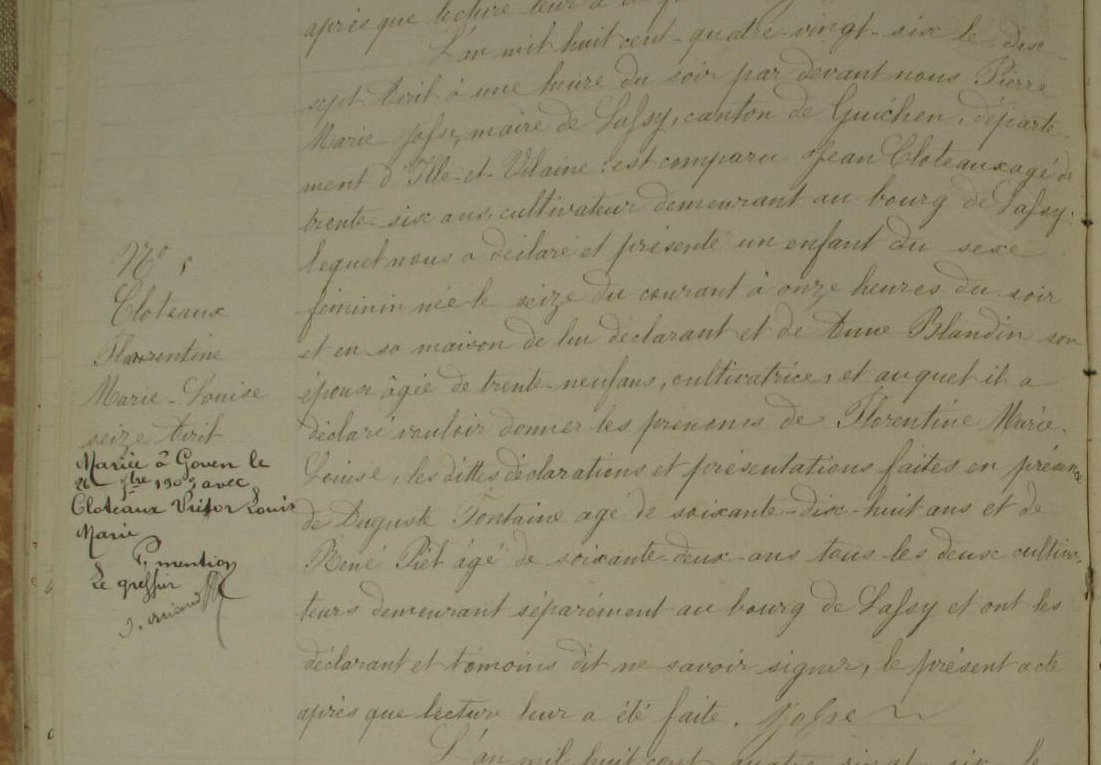 après que lecture leur a
L'an mil huit cent quatre-vingt-six le dix
sept Avril à une heure du soir par devant nous Pierre
Marie Josse, maire de Lassy, canton de Guichen, départe-
ment d'Ille-et-Vilaine est comparu Jean Cloteaux agé de
trente-six ans, cultivateur demeurant au bourg de Lassy:
lequel nous a déclaré et présenté un enfant du sexe
féminin née le seize du courant à onze heures du soir
et en sa maison de lui déclarant et de Anne Blandin son
épouse âgée de trente-neuf ans, cultivatrice, et auquel il a
déclaré vouloir donner les prénoms de Florentine Marie-
Louise, les dittes déclarations et présentations faites en présence
de Auguste Fontaine agé de soixante-dix-huit ans et de
René Piel âgé de soixante-deux ans tous les deux cultiva-
teurs demeurant séparément au bourg de Lassy et ont les
déclarant et témoins dit ne savoir signer, le présent acte
après que lecture leur a été faite. Josse
L'an mil huit cent quatre vingt six le
N°
Cloteaux
Florentine
Marie-Louise
seize Avril
Mariée à Goven le
26 avec
Cloteaux Victor Louis
Marie
P. mention
Le greffier